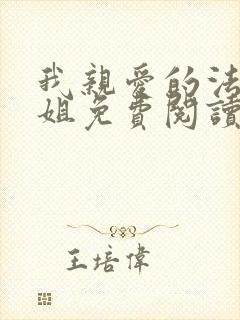 我親愛的法
姐免費閱讀
王培偉